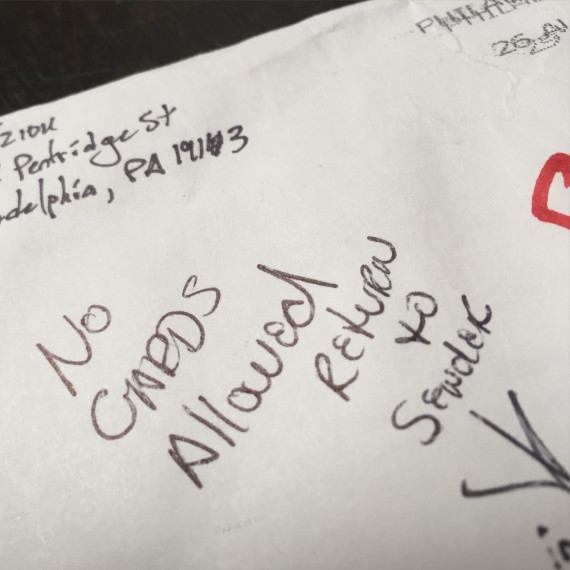 Pentridge St
delphia, PA 19143
No
CARDS
Allowed
RETURN
to
Sender